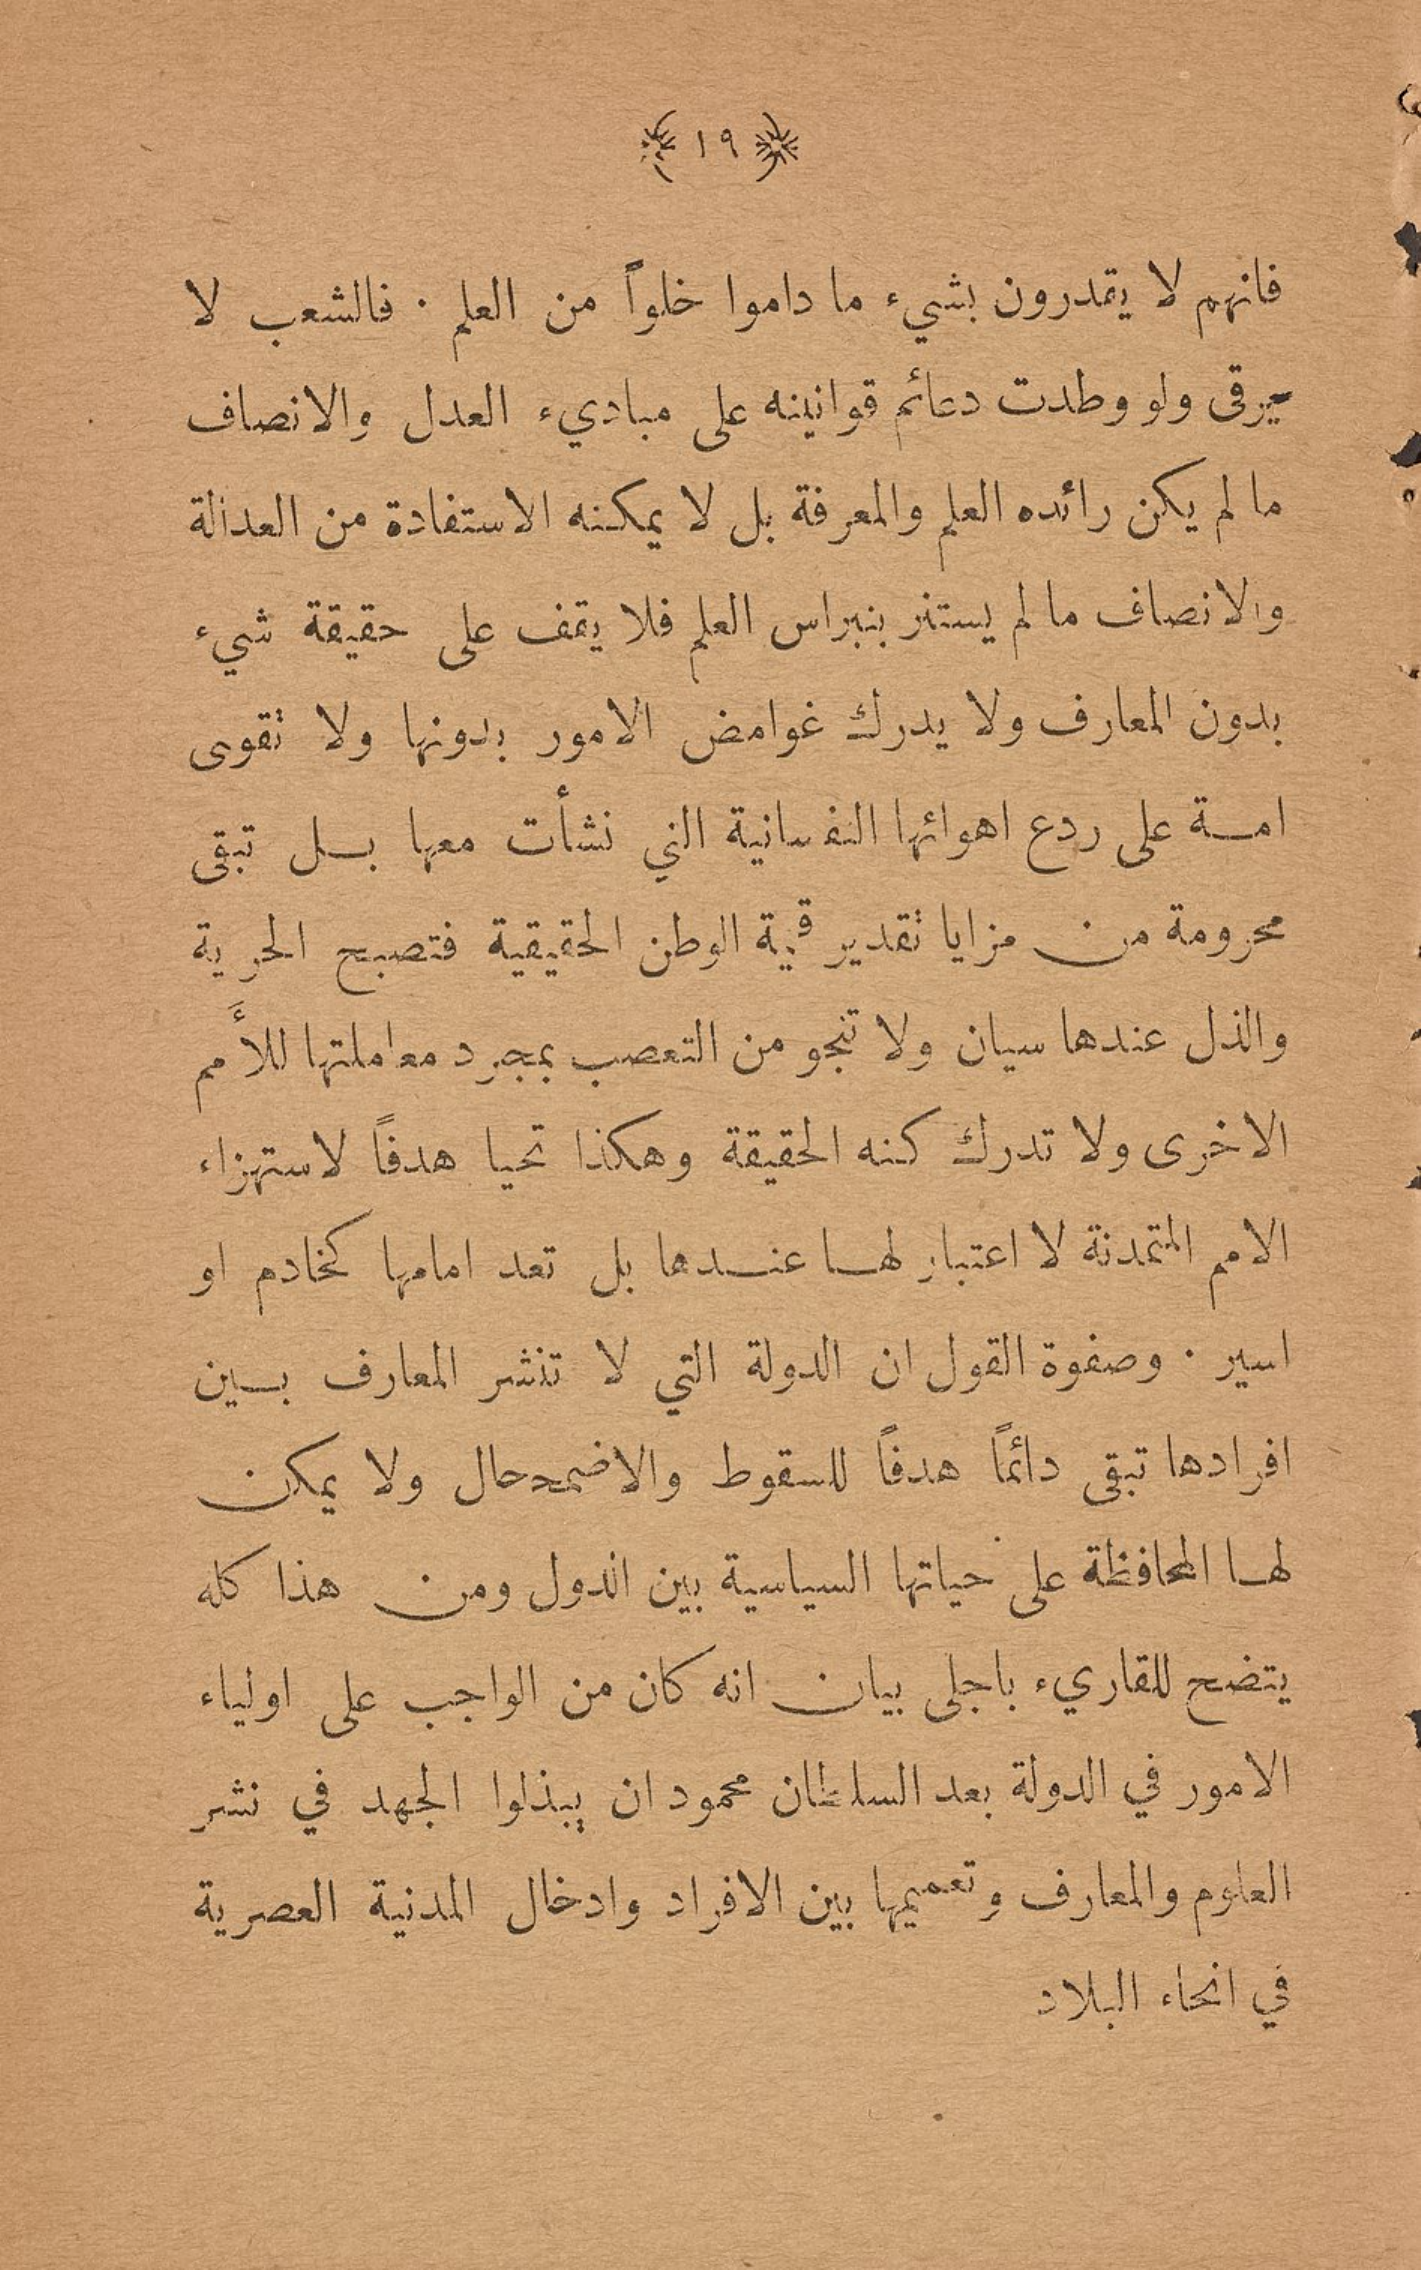 ﴿ ١٩ ﴾
فانهم لا يقدرون بشيء ما داموا خلواً من العلم . فالشعب لا
يرقى ولو وطدت دعائم قوانينه على مباديء العدل والانصاف
ما لم يكن رائده العلم والمعرفة بل لا يمكنه الاستفادة من العدالة
والانصاف ما لم يستنر بنبراس العلم فلا يقف على حقيقة شيء
بدون المعارف ولا يدرك غوامض الامور بدونها ولا تقوى
امــة على ردع اهوائها النفسانية التي نشأت معها بــل تبقى
محرومة مرن مزايا تقدير قيمة الوطن الحقيقية فتصبح الحرية
والذل عندها سيان ولا تنجو من التعصب بمجرد معاملتها للأَمم
الاخرى ولا تدرك كنه الحقيقة وهكذا تحيا هدفاً لاستهزاء
الامم المتمدنة لا اعتبار لهــا عنــدها بل تعد امامها كخادم او
اسير . وصفوة القول ان الدولة التي لا تنشر المعارف بــين
افرادها تبقى دائماً هدفاً للسقوط والاضمحلال ولا يمكن
لهــا المحافظة على حياتها السياسية بين الدول ومن هذا كله
يتضح للقاريء باجلى بيان انه كان من الواجب على اولياء
الامور في الدولة بعد السلطان محمود ان يبذلوا الجهد في نشر
العلوم والمعارف وتعميمها بين الافراد وادخال المدنية العصرية
في انحاء البلاد